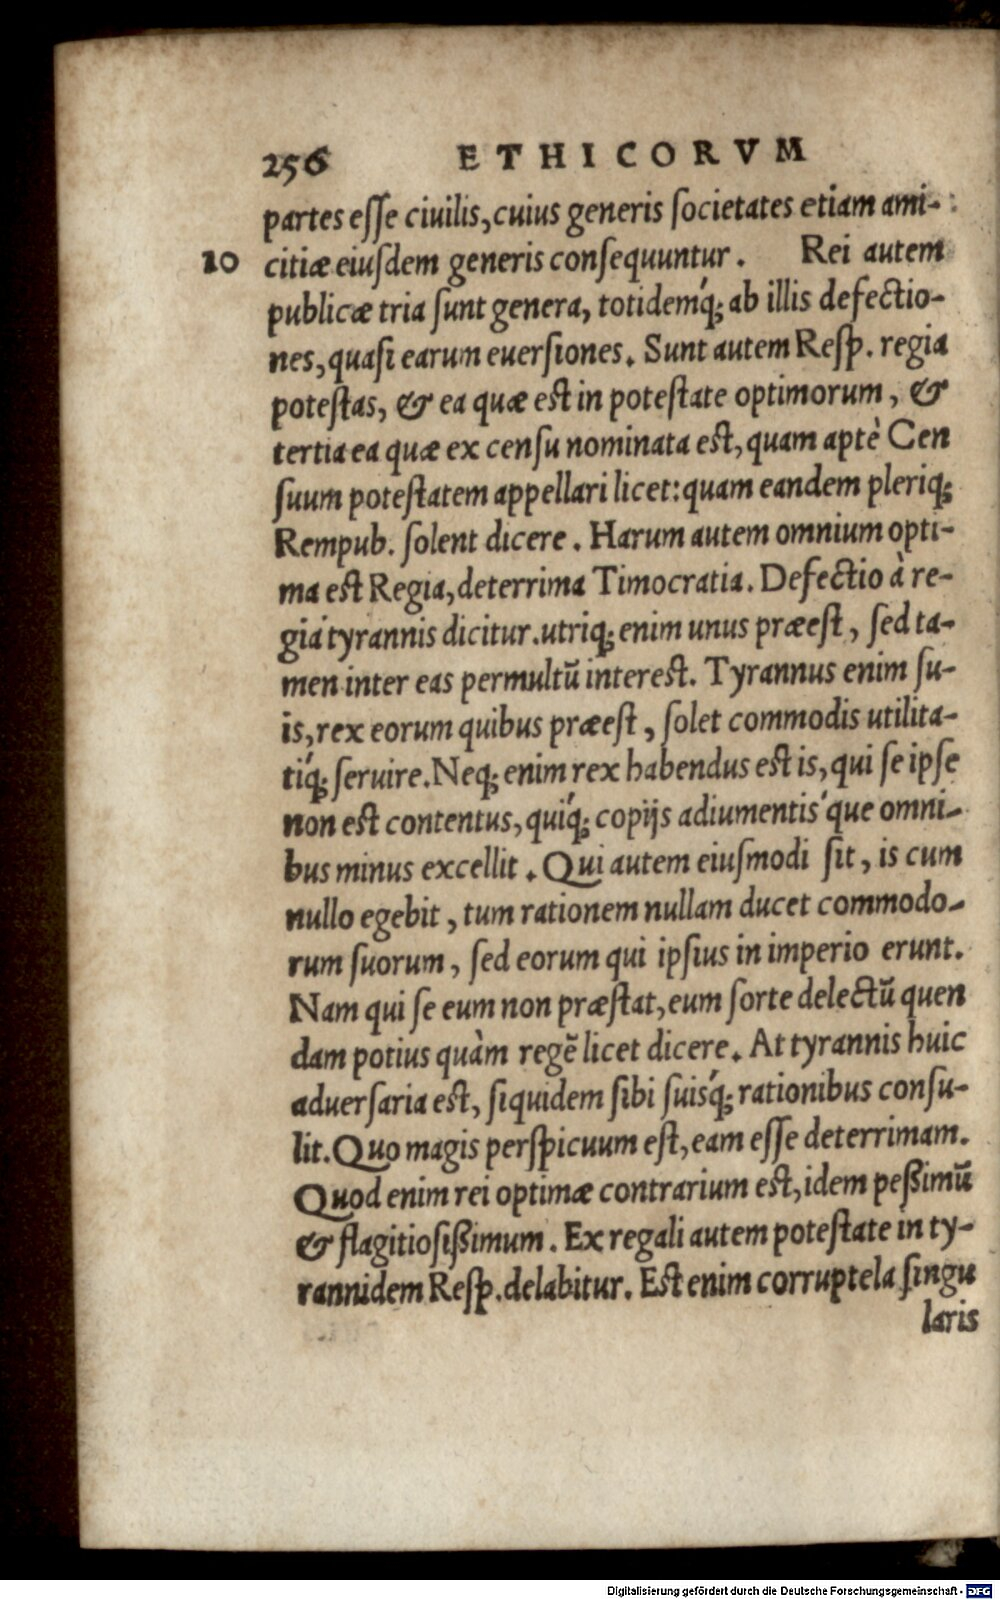 256 ETHICORVM
partes eſſe ciuilis, cuius generis ſocietates etiam ami-
10 citiæ eiuſdem generis conſequuntur. Rei autem
publicæ tria ſunt genera, totidemq́; ab illis defectio-
nes, quaſi earum euerſiones. Sunt autem Reſp. regia
poteſtas, & ea quæ eſt in poteſtate optimorum, &
tertia ea quæ ex cenſu nominata eſt, quam aptè Cen
ſuum poteſtatem appellari licet: quam eandem pleriq;
Rempub. ſolent dicere. Harum autem omnium opti-
ma eſt Regia, deterrima Timocratia. Defectio à re-
gia tyrannis dicitur. utriq; enim unus præeſt, ſed ta-
men inter eas permultū intereſt. Tyrannus enim ſu-
is, rex eorum quibus præeſt, ſolet commodis utilita-
tiq́; ſeruire. Neq; enim rex habendus eſt is, qui ſe ipſe
non eſt contentus, quiq́; copijs adiumentis'que omni-
bus minus excellit. Qui autem eiuſmodi ſit, is cum
nullo egebit, tum rationem nullam ducet commodo-
rum ſuorum, ſed eorum qui ipſius in imperio erunt.
Nam qui ſe eum non præſtat, eum ſorte delectū quen
dam potius quàm regē licet dicere. At tyrannis huic
aduerſaria eſt, ſiquidem ſibi ſuisq́; rationibus conſu-
lit. Quo magis perſpicuum eſt, eam eſſe deterrimam.
Quod enim rei optimæ contrarium eſt, idem peßimū
& flagitioſißimum. Ex regali autem poteſtate in ty-
rannidem Reſp. delabitur. Eſt enim corruptela ſingu
laris
Digitalisierung gefördert durch die Deutsche Forschungsgemeinschaft - DFG